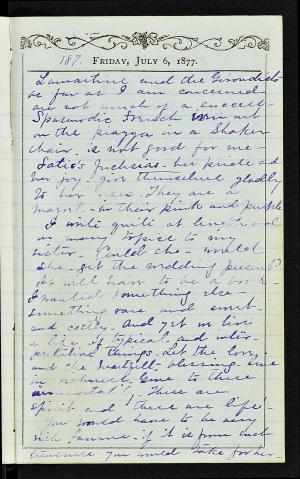 187. FRIDAY, JULY 6, 1877.
Lamartine and the Girondists
as far as I am concerned
are not much of a success.
Spasmodic French
on the piazza in a Shaker
chair is not good for me.
fuchsias - her pride and
her joy - give themselves gladly
to her They are a
marvel - in their pink and purple
I write quite at length and
on many topics to my
sister. Could she - would
she - get the wedding present?
It will have to be a book.
I wanted something else -
something rare and
and costly. And yet in
a life of typical and
things. Let the
and the heartfelt - blessing
in Some to these
immortal! There are
spirit and there are life!
You would have to be very
rich - if it is from such
treasure you would take for her -